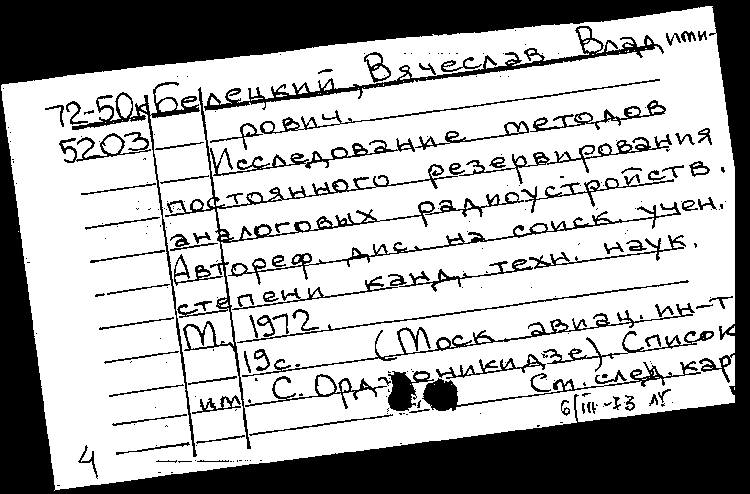 72-50к Белецкий, Вячеслав Владими-
5203 рович.
Исследование методов
постоянного резервирования
аналоговых радиоустройств.
Автореф. дис. на соиск. учен.
степени канд. техн. наук.
М., 1972.
19с. (Моск. авиац. ин-т
им. С. Орджоникидзе). Список
См. след. кар
4